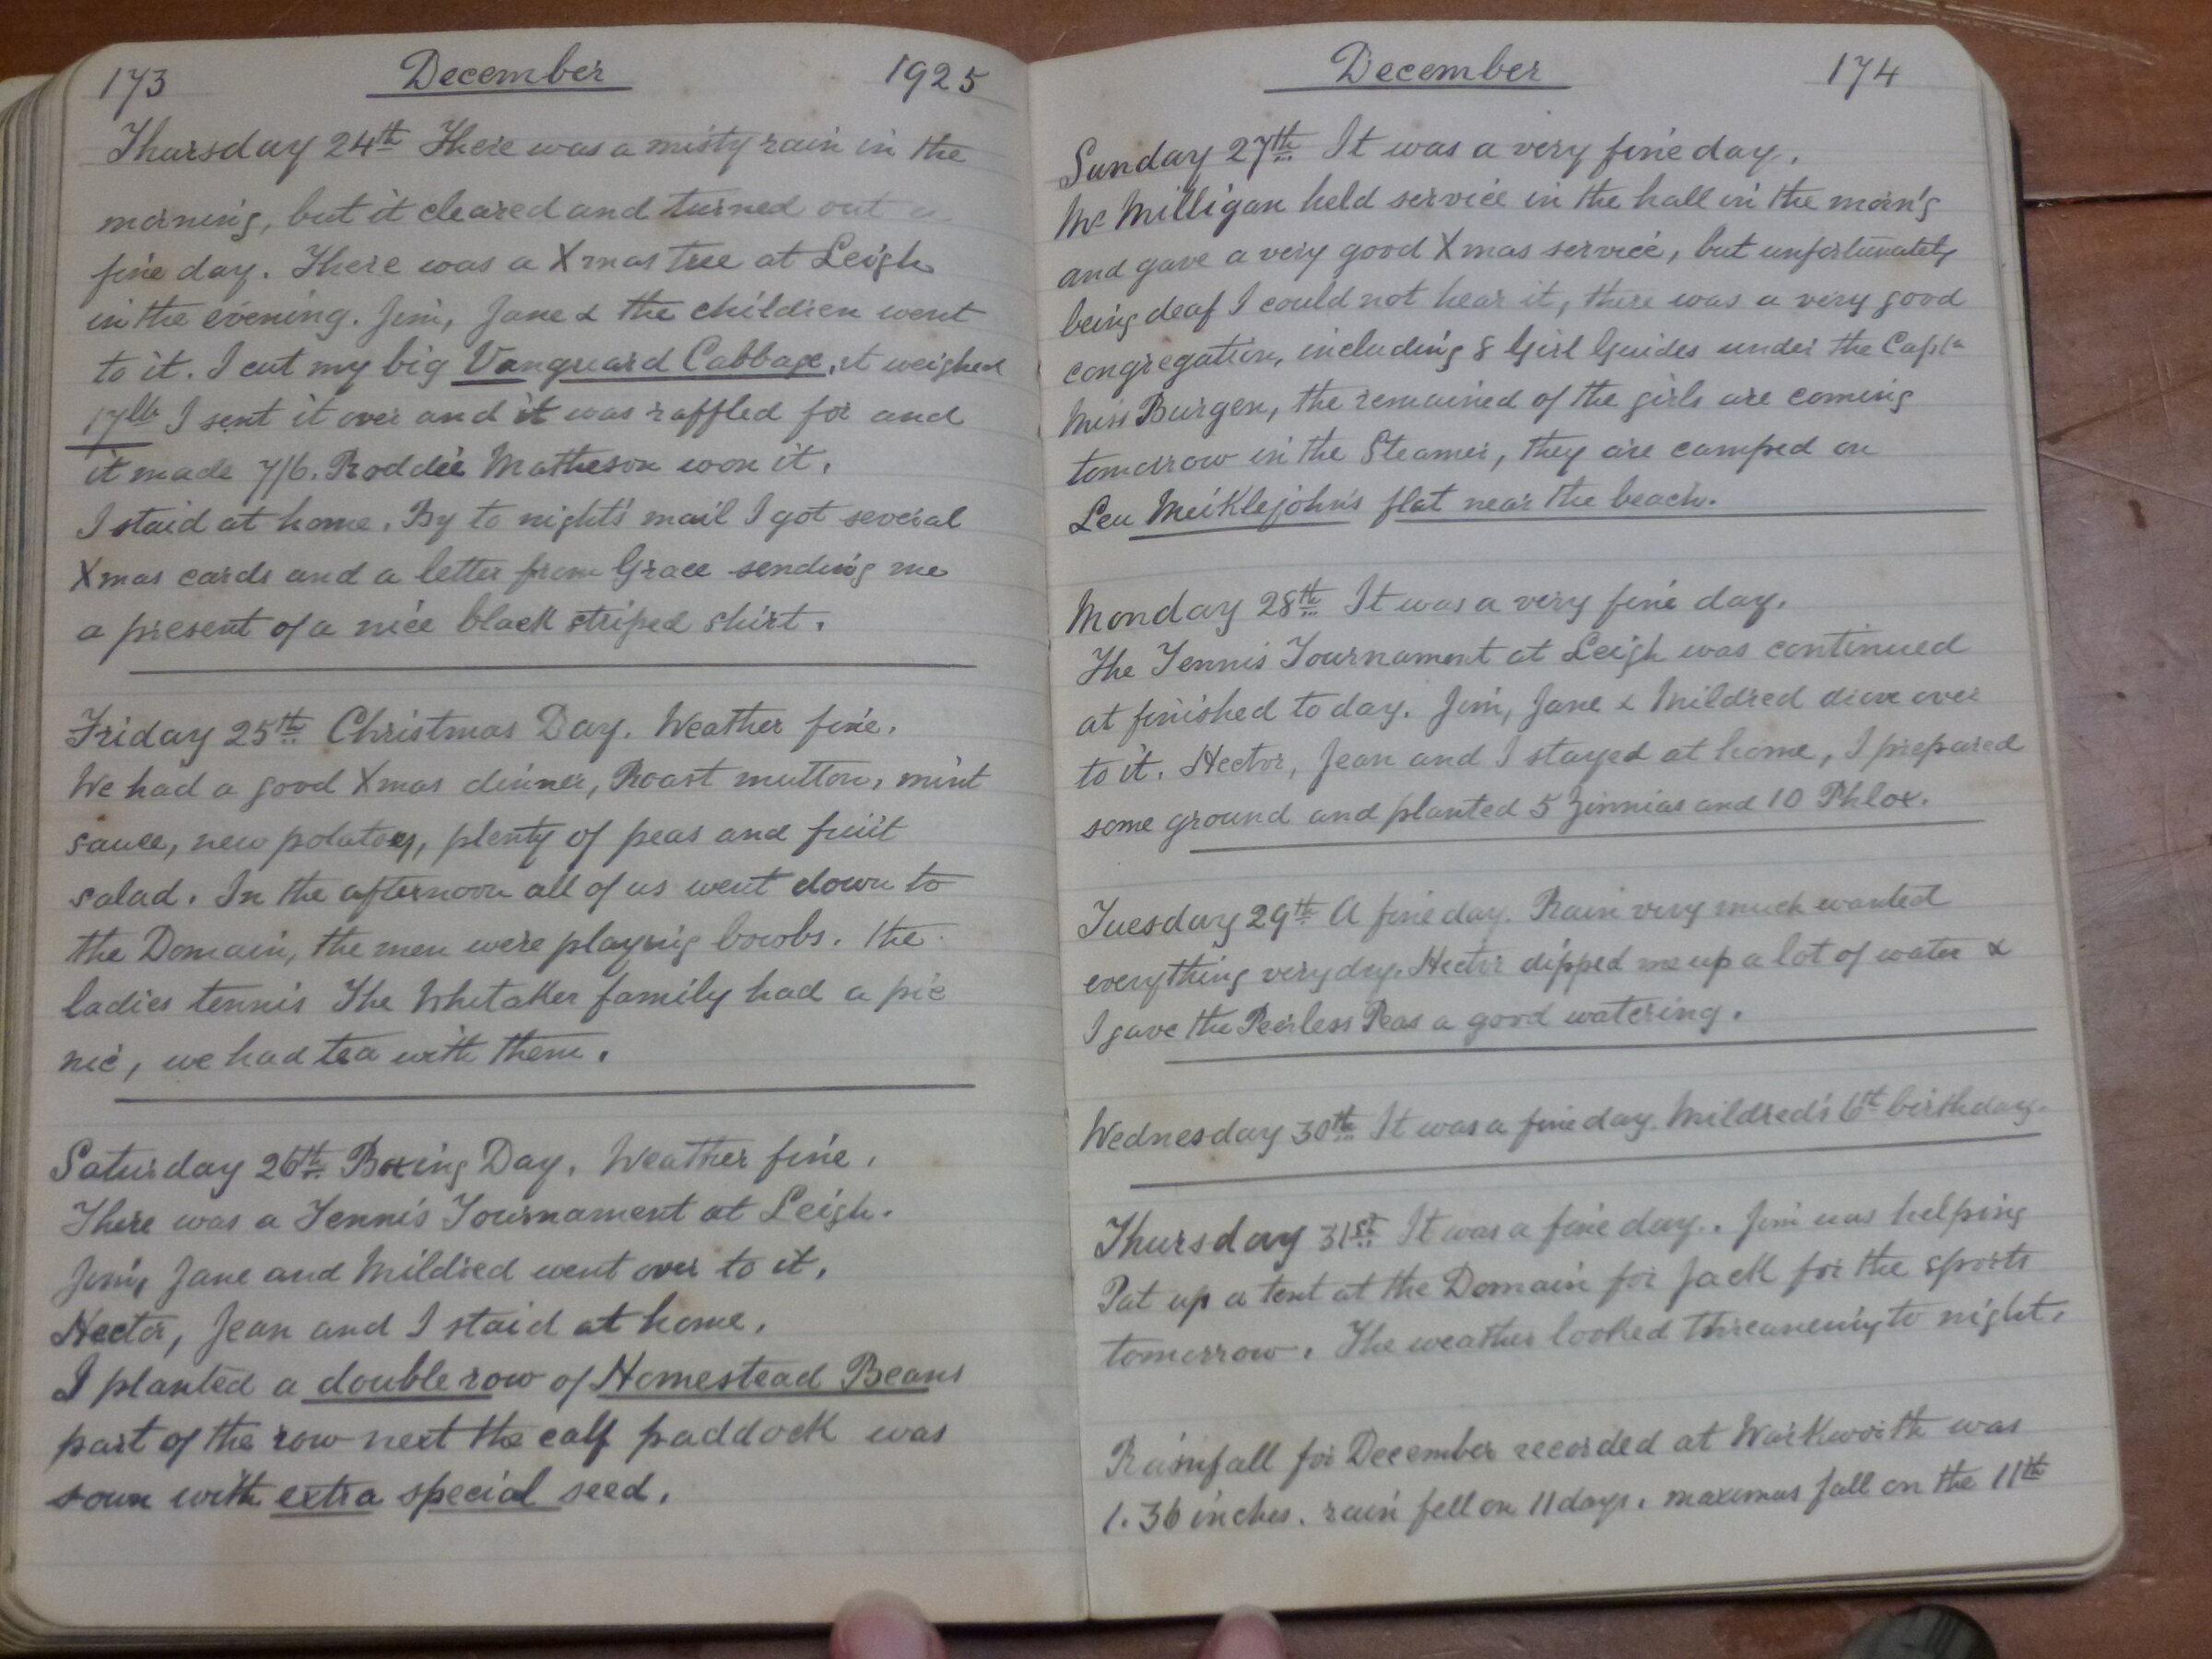 173 December 1925
Thursday 24th There was a misty rain in the
morning, but it cleared and turned out a
fine day. There was a Xmas tree at Leigh
in the evening. Jim, Jane & the children went
to it. I cut my big Vanguard Cabbage, it weighed
17lb I sent it over and it was raffled for and
it made 7/6. Roddie Matheson won it.
I staid at home. By to night's mail I got several
Xmas cards and a letter from Grace sending me
a present of a nice black striped shirt.
Friday 25th Christmas Day. Weather fine.
We had a good Xmas dinner, Roast mutton, mint
sauce, new potatoes, plenty of peas and fruit
salad. In the afternoon all of us went down to
the Domain, the men were playing bowls. The
ladies tennis The Whitaker family had a pic
nic, we had tea with them.
Saturday 26th Boxing Day. Weather fine.
There was a Tennis Tournament at Leigh.
Jim, Jane and Mildred went over to it.
Hector, Jean and I staid at home.
I planted a double row of Homestead Beans
part of the row next the calf paddock was
sown with extra special seed.
December 174
Sunday 27th It was a very fine day.
Mr Milligan held service in the hall in the morn'g
and gave a very good Xmas service, but unfortunately
being deaf I could not hear it, there was a very good
congregation, including 8 Girl Guides under the
Miss Burgen, the remained of the girls are coming
tomorrow in the Steamer, they are camped on
Leu Meiklejohn's flat near the beach.
Monday 28th It was a very fine day.
The Tennis Tournament at Leigh was continued
at finished to day. Jim, Jane & Mildred drove over
to it. Hector, Jean and I stayed at home, I prepared
some ground and planted 5 Zinnias and 10 Phlox.
Tuesday 29th A fine day. Rain very much wanted
everything very dry. Hector dipped me up a lot of water &
I gave the Peerless Peas a good watering.
Wednesday 30th It was a fine day. Mildred's 6th birthday.
Thursday 31st It was a fine day. Jim was helping
Pat up a tent at the Domain for Jack for the sports
tomorrow. The weather looked to night.
Rainfall for December recorded at Warkworth was
1.36 inches. rain fell on 11 days. maximus fall on the 11th